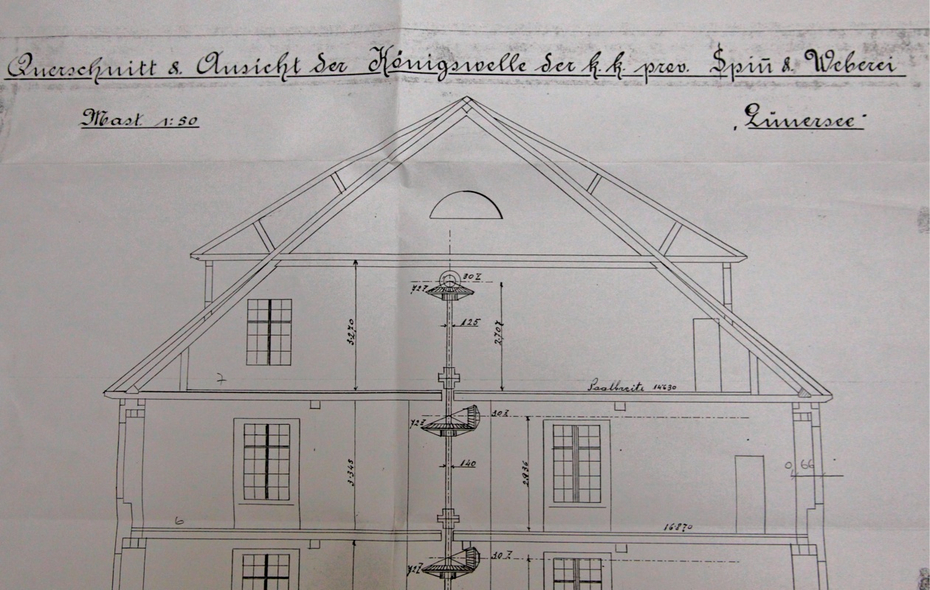 Querschnitt & Ansicht der Königswelle der k. k. prev. Spin̄ & Weberei
Mast. 1:50
„Lünersee"
80 Z
72 Z
125
3270
2,707
7
Saalbreite 14630
30 Z
72 Z
140
3.345
2.836
0,66
6
16.870
30 Z
72 Z